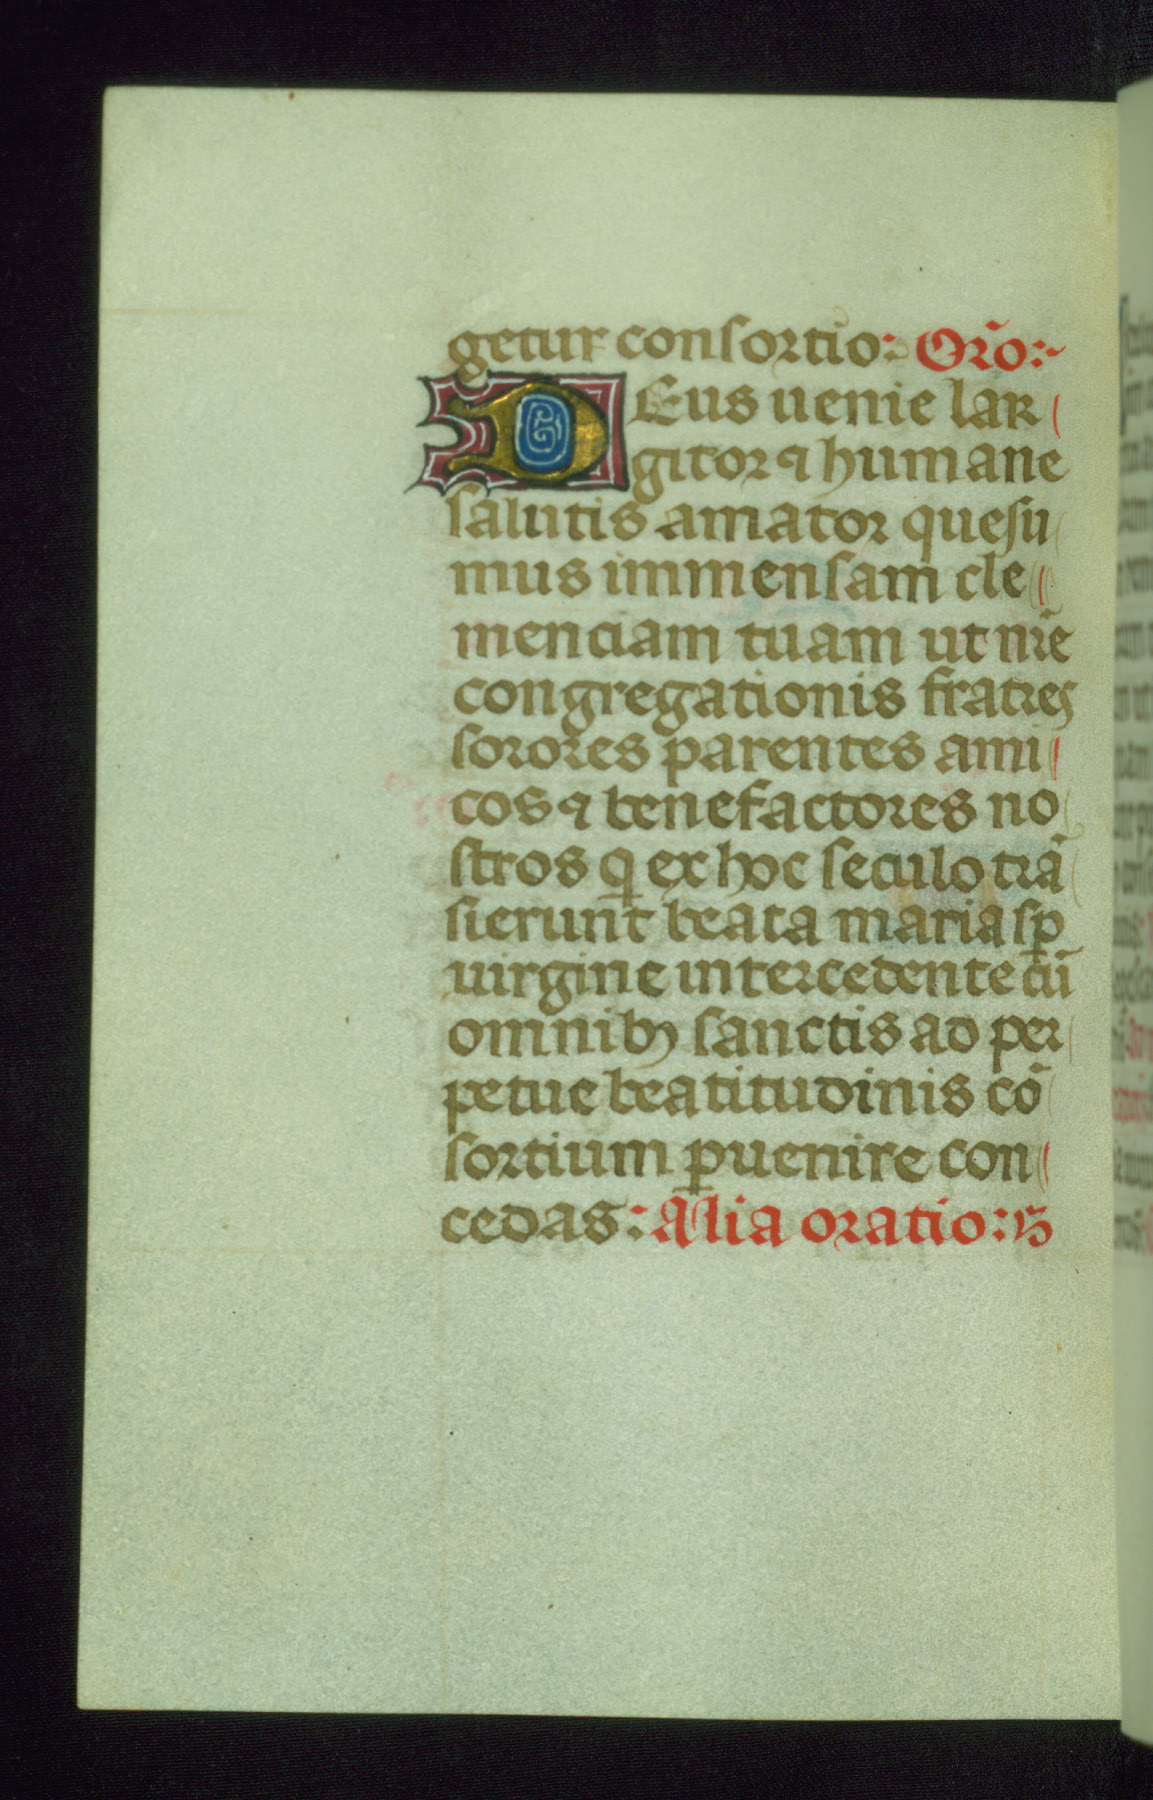 getur consortio: Or̄o:~
DEus uenie lar
gitor ⁊ humane
salutis amator quesu
mus immensam cle
menciam tuam ut nr̄e
congregationis fratres
sorores parentes ami
cos ⁊ benefactores no
stros q̲ ex hoc seculo trā
sierunt beata maria sꝑ
uirgine intercedente cū
omnibꝫ sanctis ad per
petue beatitudinis cō
sortium ꝑuenire con
cedas: Alia oratio: